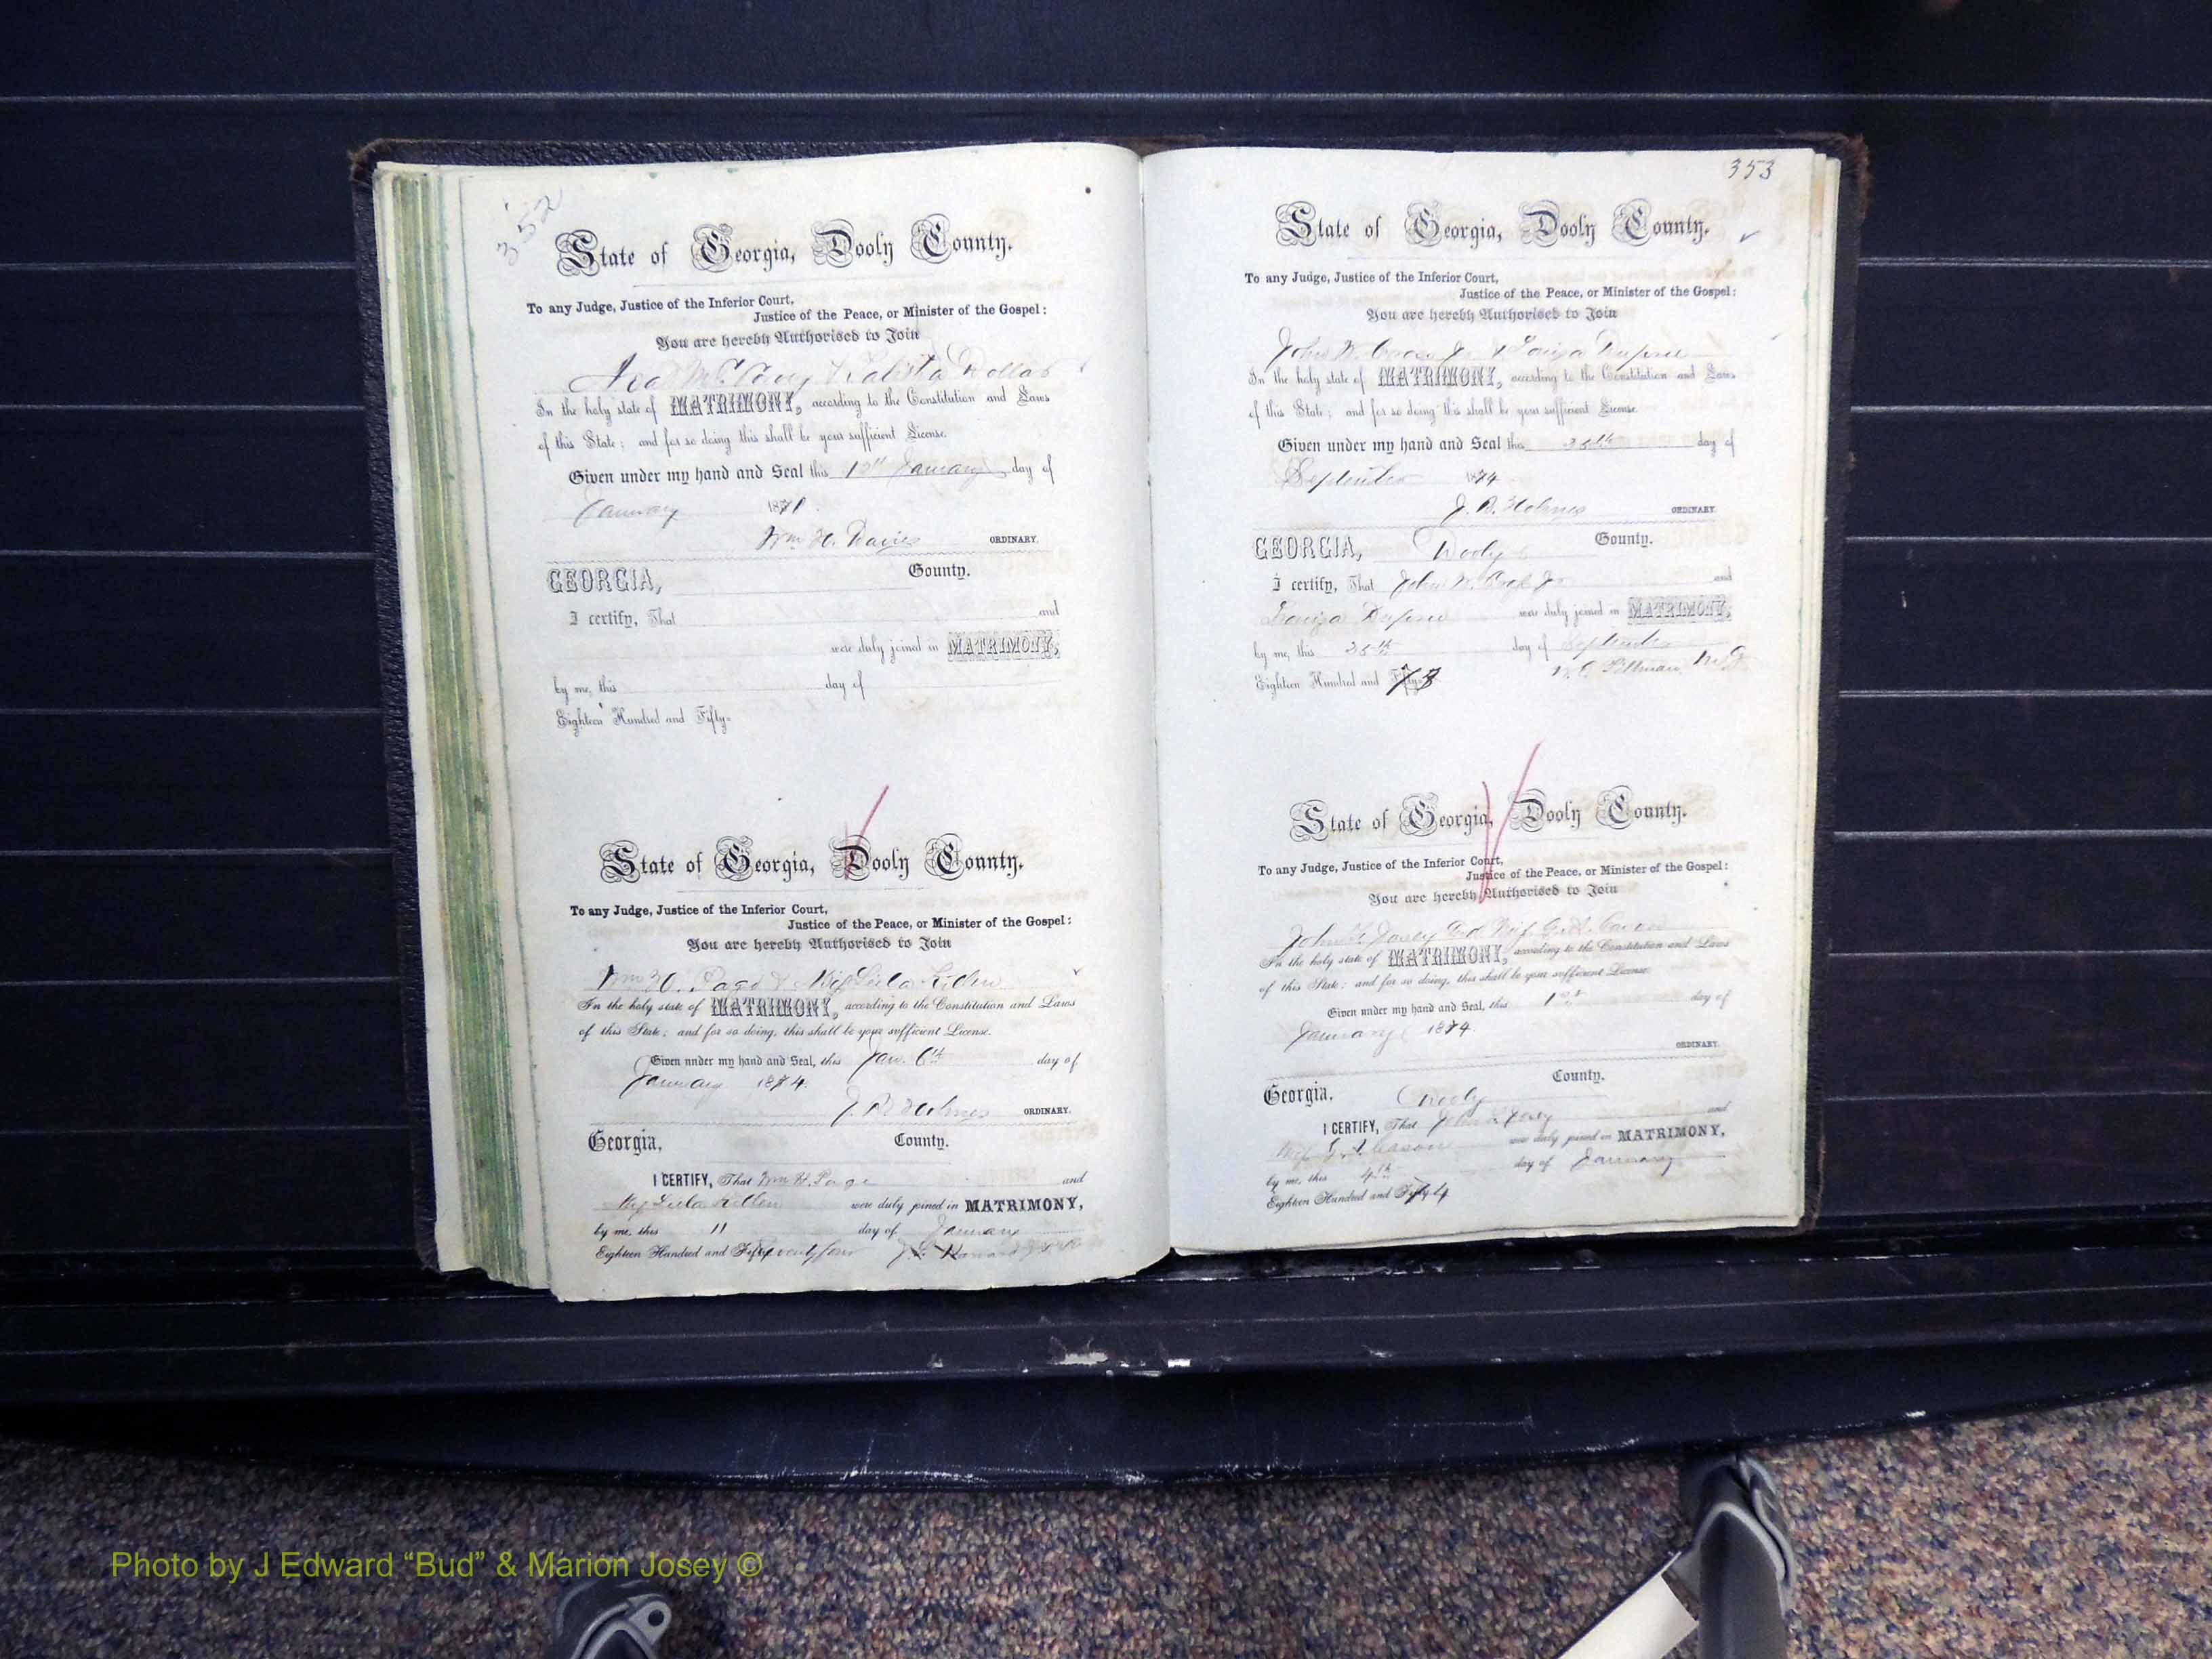 352
State of Georgia, Dooly County.
To any Judge, Justice of the Inferior Court,
Justice of the Peace, or Minister of the Gospel:
You are hereby Authorised to Join
In the holy state of MATRIMONY, according to the Constitution and Laws
of this State; and for so doing this shall be your sufficient License.
Given under my hand and Seal this 12th January day of
January 1871.
Wm H. Davies ORDINARY.
GEORGIA, County.
I certify, That and
were duly joined in MATRIMONY,
by me, this day of
Eighteen Hundred and Fifty-
State of Georgia, Dooly County.
To any Judge, Justice of the Inferior Court,
Justice of the Peace, or Minister of the Gospel:
You are hereby Authorised to Join
Wm H. Page & Miss Lula
In the holy state of MATRIMONY, according to the Constitution and Laws
of this State; and for so doing, this shall be your sufficient License.
Given under my hand and Seal, this Jan. 6th day of
January 1874.
J. B. Holmes ORDINARY.
Georgia, County.
I CERTIFY, That Wm H. Page and
Miss Lula were duly joined in MATRIMONY,
by me, this 11 day of January
Eighteen Hundred and Fifty
353
State of Georgia, Dooly County.
To any Judge, Justice of the Inferior Court,
Justice of the Peace, or Minister of the Gospel:
You are hereby Authorised to Join
John W. Jr & Louiza Dupree
In the holy state of MATRIMONY, according to the Constitution and Laws
of this State; and for so doing this shall be your sufficient License.
Given under my hand and Seal this day of
September 1874
J. B. Holmes ORDINARY.
GEORGIA, Dooly County.
I certify, That John W. Jr and
Louiza Dupree were duly joined in MATRIMONY,
by me, this day of September
Eighteen Hundred and Pittman, M.G
State of Georgia, Dooly County.
To any Judge, Justice of the Inferior Court,
Justice of the Peace, or Minister of the Gospel:
You are hereby Authorised to Join
John Josey and Miss Cason
In the holy state of MATRIMONY, according to the Constitution and Laws
of this State; and for so doing, this shall be your sufficient License.
Given under my hand and Seal, this 1st day of
January 1874
ORDINARY.
Georgia, Dooly County.
I CERTIFY, That John Josey and
Miss Cason were duly joined in MATRIMONY,
by me, this 4th day of January
Eighteen Hundred and Fifty-4
Photo by J Edward “Bud” & Marion Josey ©